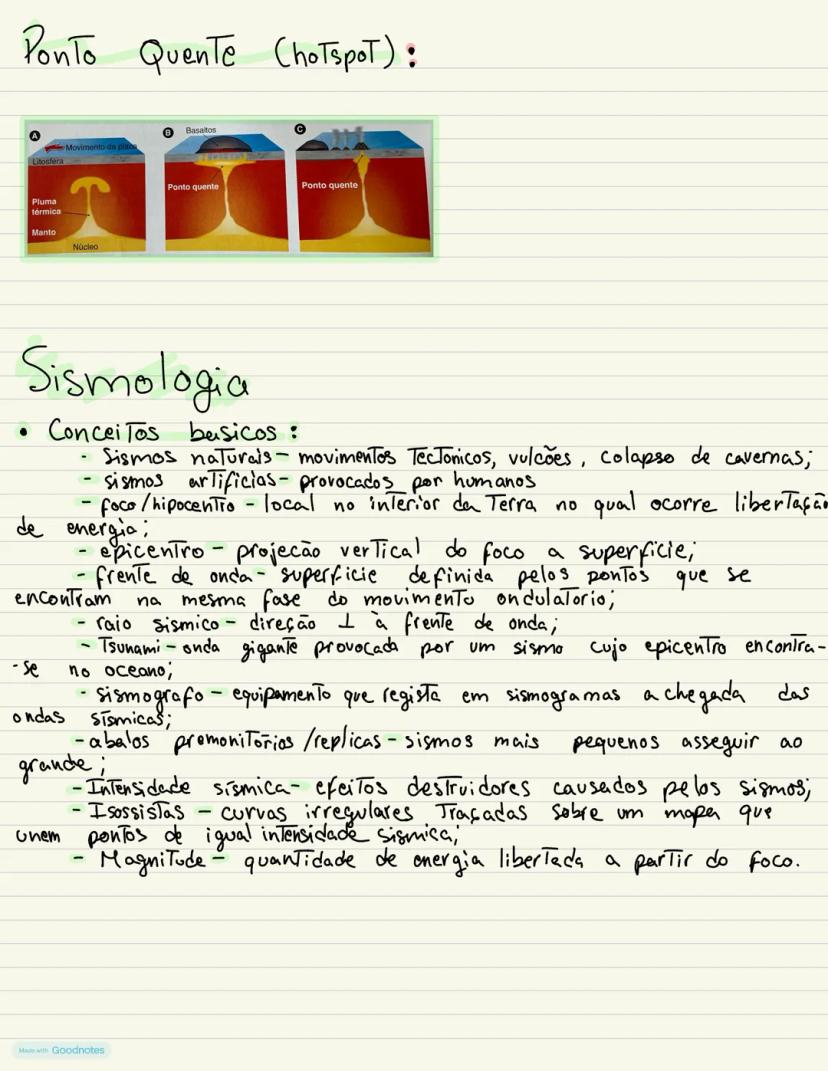 Ponto Quente (hotspot):
A
Movimento da placa
Litosfera
Pluma
térmica
Manto
Núcleo
B
Basaltos
Ponto quente
C
Ponto quente
Sismologia
• Conceitos basicos:
- Sismos naturais - movimentos Tectonicos, vulcões, colapso de cavernas;
- sismos artificias - provocados por humanos
- foco/hipocentro - local no interior da Terra no qual ocorre libertação
de energia;
- epicentro - projecão vertical do foco a superficie;
- frente de onda - superficie definida pelos pontos que se
encontram na mesma fase do movimento ondulatorio;
- raio sismico - direção ⊥ à frente de onda;
- Tsunami - onda gigante provocada por um sismo cujo epicentro encontra-
-se no oceano;
- sismografo - equipamento que regista em sismogramas a chegada das
ondas sísmicas;
- abalos premonitórios/replicas - sismos mais pequenos asseguir ao
grande;
- Intensidade sísmica - efeitos destruidores causados pelos sismos;
- Isossistas - curvas irregulares Traçadas sobre um mapa que
unem pontos de igual intensidade sismica;
- Magnitude - quantidade de energia libertada a partir do foco.
Made with Goodnotes